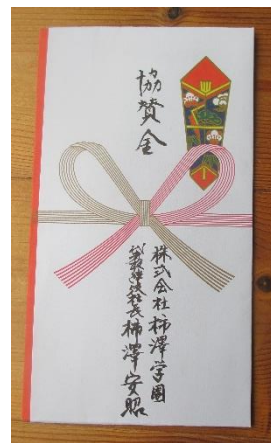 協賛金
株式会社柿澤学園
代表取締役社長 柿澤安昭